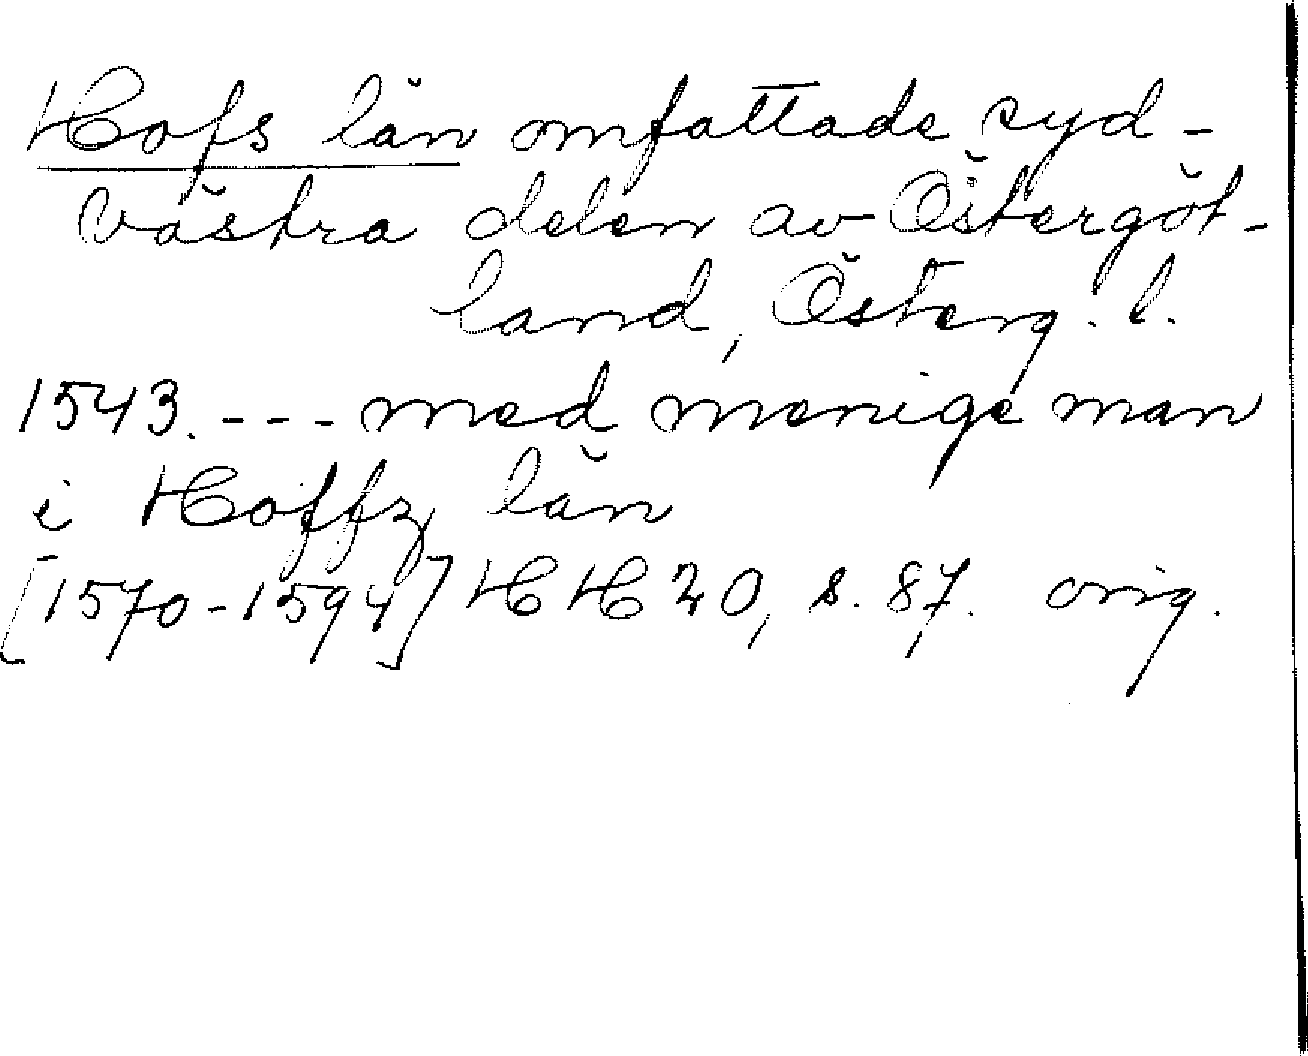 Hofs län omfattade syd-
västra delen av Östergöt-
land, Österg. l.
1543. --- med menige man
i Hoffz län
[1570-1594] HH 20, s. 87. orig.